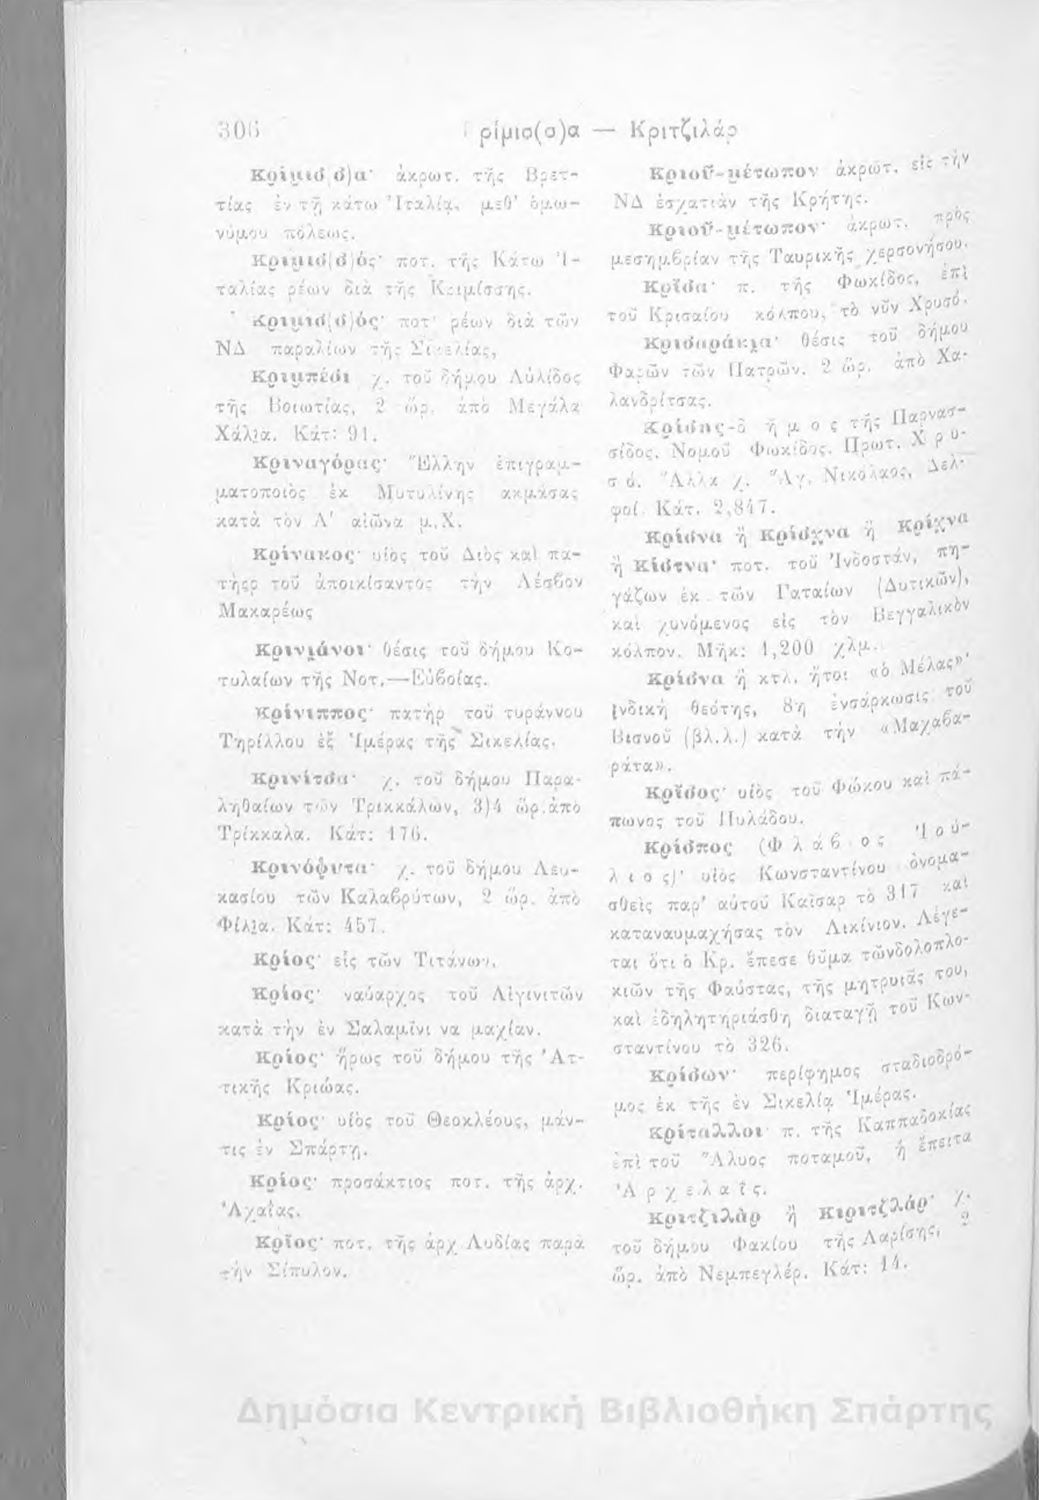 306
ρίμισ(σ)α — Κριτζιλάρ
Κρίμισ(σ)α· ἀκρωτ. τῆς Βρετ-
τίας ἐν τῇ κάτω Ἰταλίᾳ, μεθ' ὁμω-
νύμου πόλεως.
Κριμισ(σ)ός· ποτ. τῆς Κάτω Ἰ-
ταλίας ῥέων διὰ τῆς Κριμίσσης.
Κριμισ(σ)ός· ποτ· ῥέων διὰ τῶν
ΝΔ παραλίων τῆς Σικελίας,
Κριμπέσι χ. τοῦ δήμου Αὐλίδος
τῆς Βοιωτίας, 2 ὥρ. ἀπὸ Μεγάλα
Χάλια. Κάτ: 91.
Κριναγόρας· Ἕλλην ἐπιγραμ-
ματοποιὸς ἐκ Μυτυλίνης ἀκμάσας
κατὰ τὸν Α' αἰῶνα μ.Χ.
Κρίνακος· υἱὸς τοῦ Διὸς καὶ πα-
τὴρ τοῦ ἀποικίσαντος τὴν Λέσβον
Μακαρέως
Κρινιάνοι· θέσις τοῦ δήμου Κο-
τυλαίων τῆς Νοτ.—Εὐβοίας.
Κρίνιππος· πατὴρ τοῦ τυράννου
Τηρίλλου ἐξ Ἱμέρας τῆς Σικελίας.
Κρινίτσα· χ. τοῦ δήμου Παρα-
ληθαίων τῶν Τρικκάλων, 3)4 ὥρ.ἀπὸ
Τρίκκαλα. Κάτ: 176.
Κρινόφυτα· χ. τοῦ δήμου Λευ-
κασίου τῶν Καλαβρύτων, 2 ὥρ. ἀπὸ
Φίλια. Κάτ: 457.
Κρίος· εἷς τῶν Τιτάνων.
Κρίος· ναύαρχος τοῦ Αἰγινιτῶν
κατὰ τὴν ἐν Σαλαμῖνι να μαχίαν.
Κρίος· ἥρως τοῦ δήμου τῆς Ἀτ-
τικῆς Κριώας.
Κρίος· υἱὸς τοῦ Θεοκλέους, μάν-
τις ἐν Σπάρτῃ.
Κρίος· προσάκτιος ποτ. τῆς ἀρχ.
Ἀχαΐας.
Κρῖος· ποτ. τῆς ἀρχ Λυδίας παρὰ
τὴν Σίπυλον.
Κριοῦ-μέτωπον ἀκρωτ. εἰς τὴν
ΝΔ ἐσχατιὰν τῆς Κρήτης.
Κριοῦ-μέτωπον· ἀκρωτ. πρὸς
μεσημβρίαν τῆς Ταυρικῆς χερσονήσου.
Κρῖσα· π. τῆς Φωκίδος, ἐπὶ
τοῦ Κρισαίου κόλπου, τὸ νῦν Χρυσό.
Κρισαράκια· θέσις τοῦ δήμου
Φαρῶν τῶν Πατρῶν. 2 ὥρ. ἀπὸ Χα-
λανδρίτσας.
Κρίσης-δ ή μ ο ς τῆς Παρνασ-
σίδος, Νομοῦ Φωκίδος. Πρωτ. Χ ρ υ-
σ ό. Ἄλλα χ. Ἅγ. Νικόλαος, Δελ-
φοί. Κάτ. 2,847.
Κρίσνα ἢ Κρίσχνα ἢ Κρίχνα
ἢ Κίστνα· ποτ. τοῦ Ἰνδοστάν, πη-
γάζων ἐκ τῶν Γαταίων (Δυτικῶν),
καὶ χυνόμενος εἰς τὸν Βεγγαλικὸν
κόλπον. Μῆκ: 1,200 χλμ.
Κρίσνα ἢ κτλ. ἤτοι «ὁ Μέλας»·
ἰνδικὴ θεότης, 8η ἐνσάρκωσις τοῦ
Βισνοῦ (βλ.λ.) κατὰ τὴν «Μαχαβα-
ράτα».
Κρῖσος· υἱὸς τοῦ Φώκου καὶ πά-
πωνος τοῦ Πυλάδου.
Κρίσπος (Φ λ ά β ο ς Ἰ ο ύ-
λ ι ο ς)· υἱὸς Κωνσταντίνου ὀνομα-
σθεὶς παρ' αὐτοῦ Καῖσαρ τὸ 317 καὶ
καταναυμαχήσας τὸν Λικίνιον. Λέγε-
ται ὅτι ὁ Κρ. ἔπεσε θῦμα τῶνδολοπλο-
κιῶν τῆς Φαύστας, τῆς μητρυιᾶς του,
καὶ ἐδηλητηριάσθη διαταγῇ τοῦ Κων-
σταντίνου τὸ 326.
Κρίσων· περίφημος σταδιοδρό-
μος ἐκ τῆς ἐν Σικελίᾳ Ἱμέρας.
Κρίταλλοι· π. τῆς Καππαδοκίας
ἐπὶ τοῦ Ἅλυος ποταμοῦ, ἡ ἔπειτα
Ἀ ρ χ ε λ α ΐ ς.
Κριτζιλὰρ ἢ Κιριτζλάρ· χ.
τοῦ δήμου Φακίου τῆς Λαρίσης, 2
ὥρ. ἀπὸ Νεμπεγλέρ. Κάτ: 14.
Δημόσια Κεντρική Βιβλιοθήκη Σπάρτης